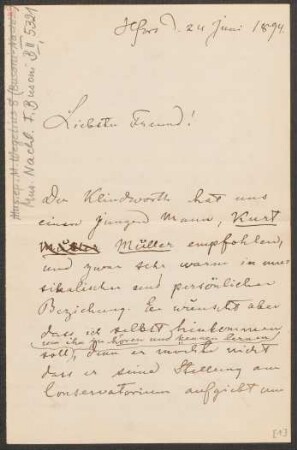 H:fors d. 24 Juni 1894
Liebster Freund!
Der Klindworth hat uns
einen jungen Mann, Kurt
Müller empfohlen,
und zwar sehr warm in mu-
sikalischer und persönlicher
Beziehung. Er wünscht aber
dass ich selbst hinkommen
um ihn zu hören und kennen lernen
soll, denn er möchte nicht
dass er seine Stellung am
Conservatorium aufgiebt um
Mus. Nachl. F. Busoni B II, 5321
[1]